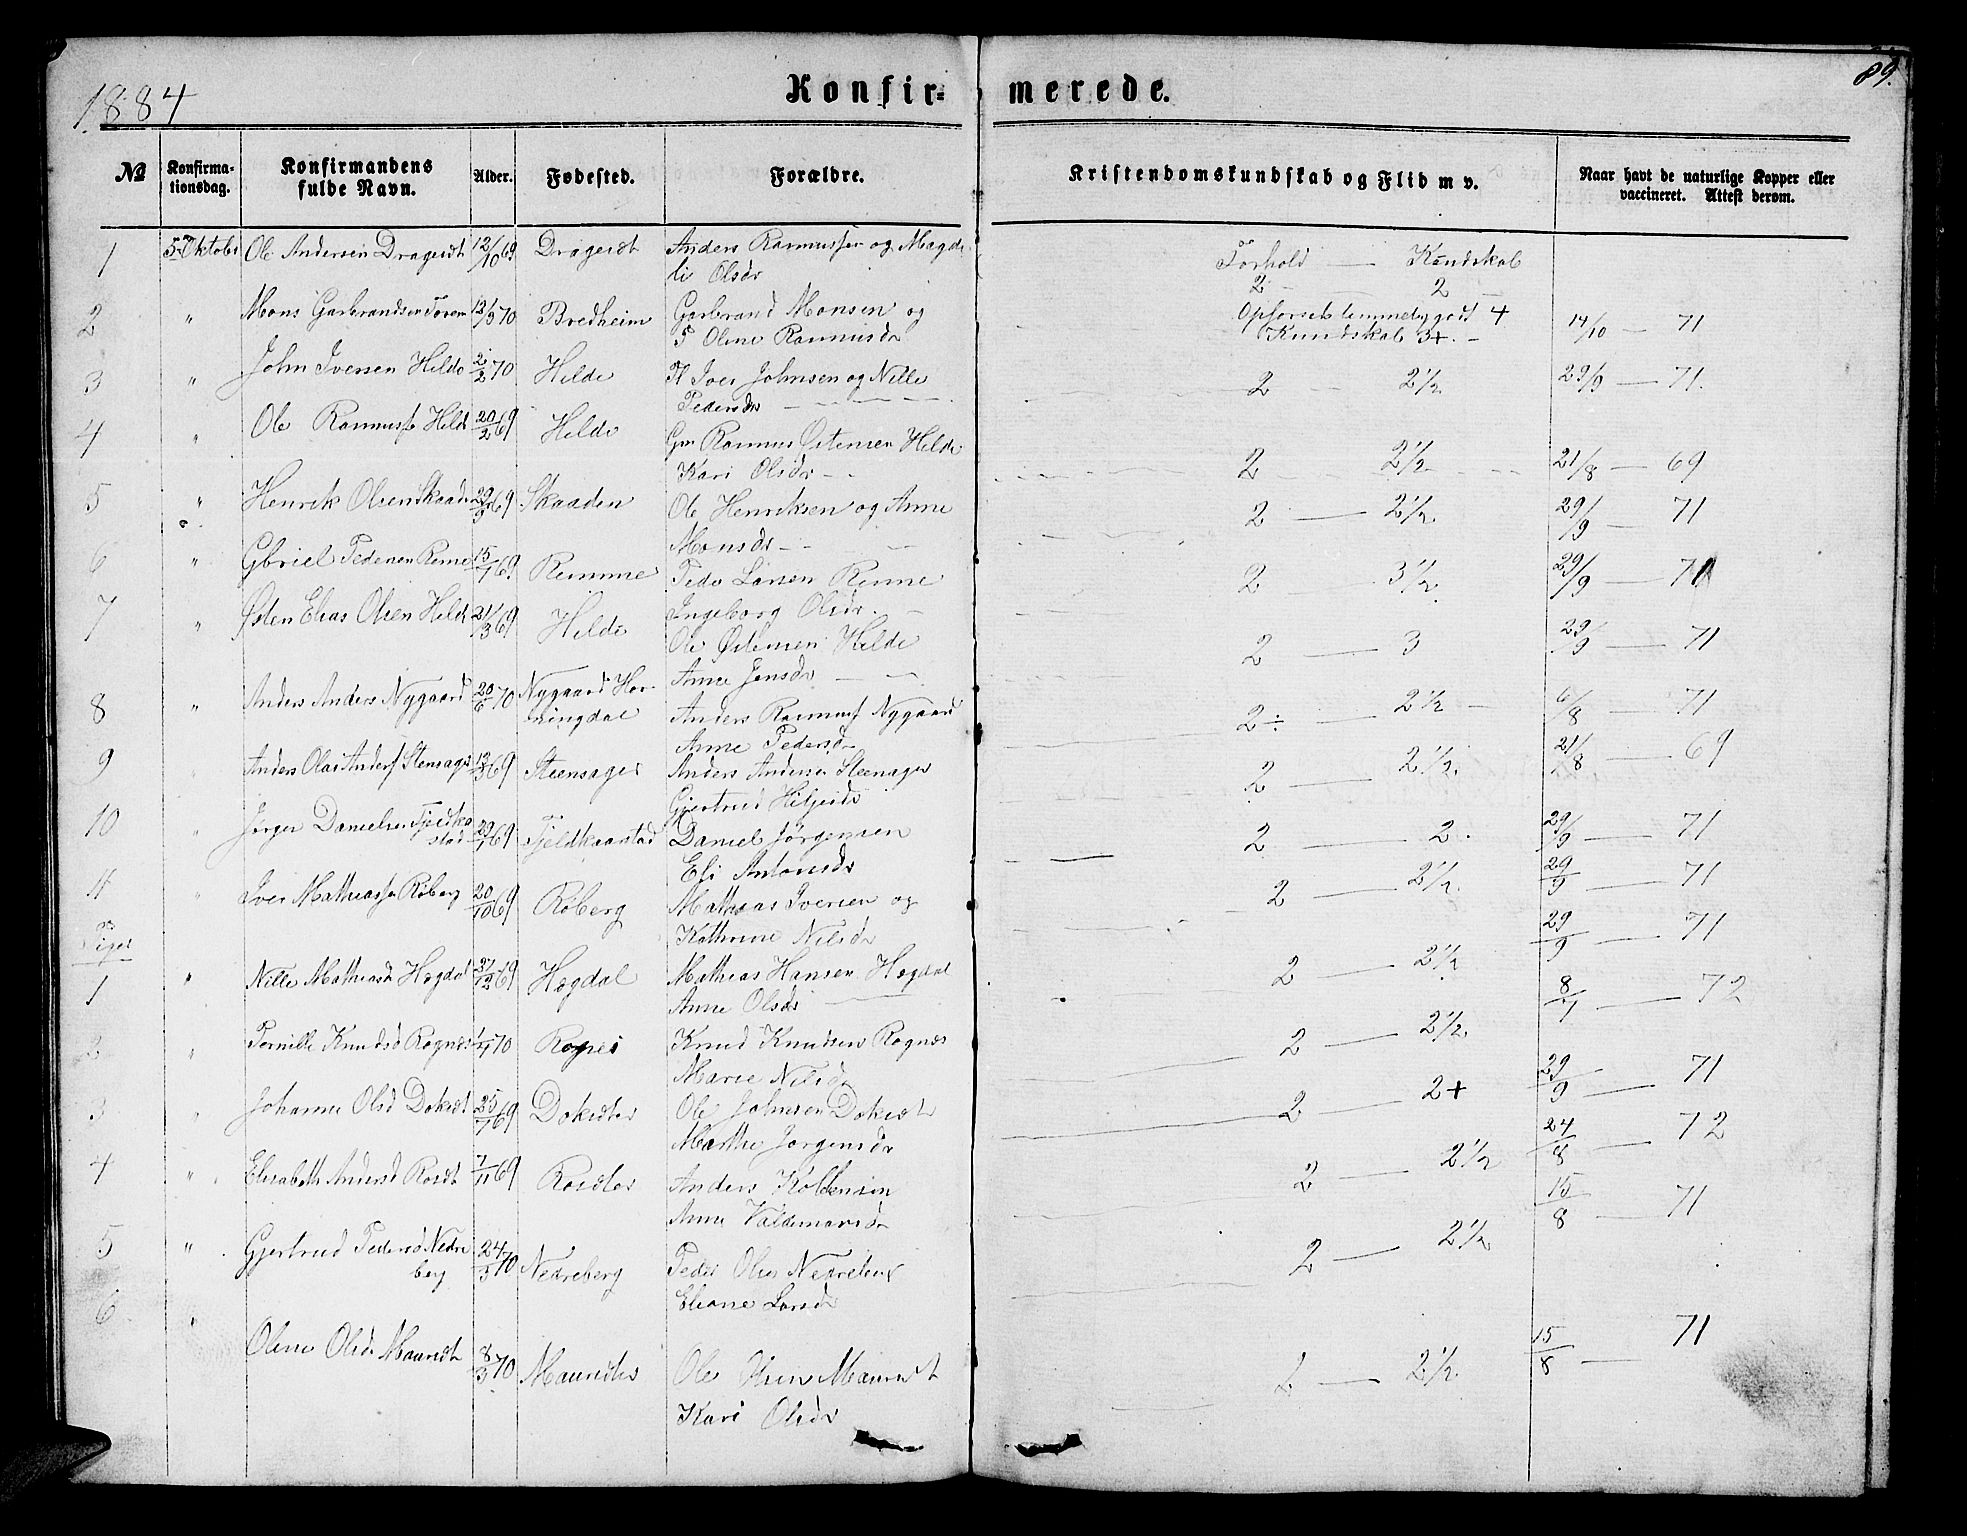 1884
Konfir- merede.
89.
No Konfirma-tionsdag. Konfirmandens fulde Navn. Alder. Fødested. Forældre. Kristendomskundskab og Flid m v. Naar havt de naturlige Kopper eller vaccineret. Attest derom.
1 5 Oktober Ole Andersen Drageset 12/10 69 Drageset Anders Rasmussen og Magde Forhold — Kundskab
li Olsdr 2 2
2 " Mons Garbrandsen 12/3 70 Bredheim Garbrand Monsen og Opførsel temmelig godt 4 14/10 — 71
Oline Rasmusdr Kundskab 3+. -
3 " John Iversen Hilde 2/2 70 Hilde Iver Johnsen og Nille 2 - 2½ 29/9 — 71.
Pedersdr
4 " Ole Rasmuss Hilde 20/2 69 Hilde Gm Rasmus Østensen Hilde 2 2½ 21/8 — 69
Kari Olsdr
5 " Henrik Olsen Skaaden 29/9 69 Skaaden Ole Henriksen og Anne 2 — 2½ 29/9 — 71
Monsdr
6 " Gbriel Pedersen Remme 15/1 69 Remme Peder Larsen Remme 2 3½ 29/9 — 71
Ingeborg Olsdr.
7 " Østen Elias Olsen Hilde 21/3 69 Hilde Ole Østensen Hilde 2 — 3 29/9 — 71
Anne Jensdr
8 " Anders Anders Nygaard 20/6 70 Nygaard Hor-ningdal Anders Rasmuss Nygaard 2÷ — 2½ 6/8 — 71
Anne Pedersdr
9 " Anders Olai Anders Stensager 13/3 69 Steensager Anders Andersen Steensager 2 — 2½ 21/8 — 69
Gjertrud
10 " Jørgen Danielsen Tjeldka stad 29/1 69 Tjeldkaarstad Daniel Jørgensen 2 — 2 29/9 — 71
Eli Antonsdr
11 " Iver Mathiass Røberg 20/10 69 Røberg Mathias Iversen og 2 — 2½ 29/9 — 71
Kathrine Nilsdr
Piger
1 " Nille Mathiasd Høgdal 27/12 69 Høgdal Mathias Hansen Høgdal 2 — 2½ 29/9 — 71
Anne Olsdr
2 " Pernille Knudsd Rognes 1/1 70 Rognes Knud Knudsen Rognes 2 — 2½ 8/7 — 72
Marie Nilsd
3 " Johanne Olsd Dokset 25/7 69 Ole Johnsen Dokset 2 — 2+ 29/9 — 71
Marthe Jørgensdr
4 " Elisabeth Andersd Roset 7/11 69 Anders 2 — 2½ 24/8 — 72
Anne Valdemarsdr
5 " Gjertrud Pedersd Nedre berg 24/3 70 Nedreberg Peder Olsen Nedreberg 2 — 2½ 15/8 — 71
Eliane Larsdr
6 " Oline Olsdr Maurset 8/3 70 Ole Olsen Maurset 2 — 2½ 15/8 — 71
Kari Olsdr